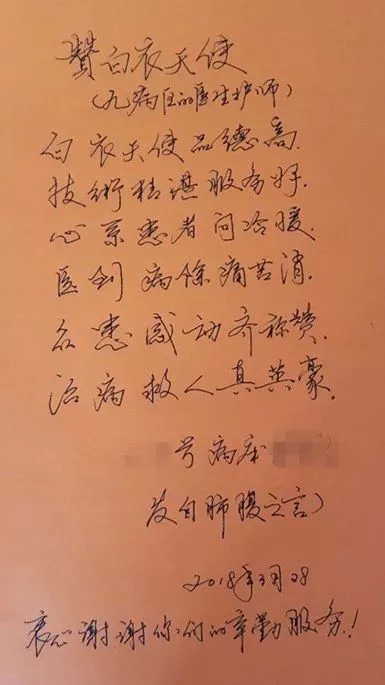 贊白衣天使
(九病区的医生护师)
白衣天使品德高.
技術精湛服务好.
心系患者问冷暖.
医到病除痛苦消.
众患感动齐称赞.
治病救人真英豪.
号病床
发自肺腹之言)
2018年3月08
衷心谢谢你们的辛勤服务!